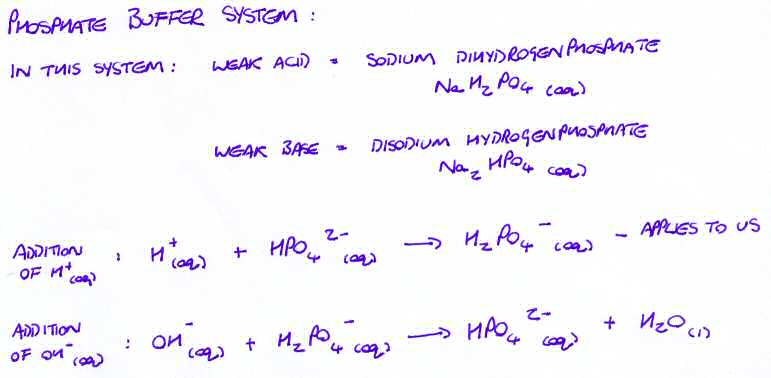 PHOSPHATE BUFFER SYSTEM :
IN THIS SYSTEM : WEAK ACID = SODIUM DIHYDROGENPHOSPHATE
NaH₂PO₄ (aq)
WEAK BASE = DISODIUM HYDROGENPHOSPHATE
Na₂HPO₄ (aq)
ADDITION OF H⁺(aq) : H⁺(aq) + HPO₄²⁻(aq) → H₂PO₄⁻(aq) – APPLIES TO US
ADDITION OF OH⁻(aq) : OH⁻(aq) + H₂PO₄⁻(aq) → HPO₄²⁻(aq) + H₂O(l)